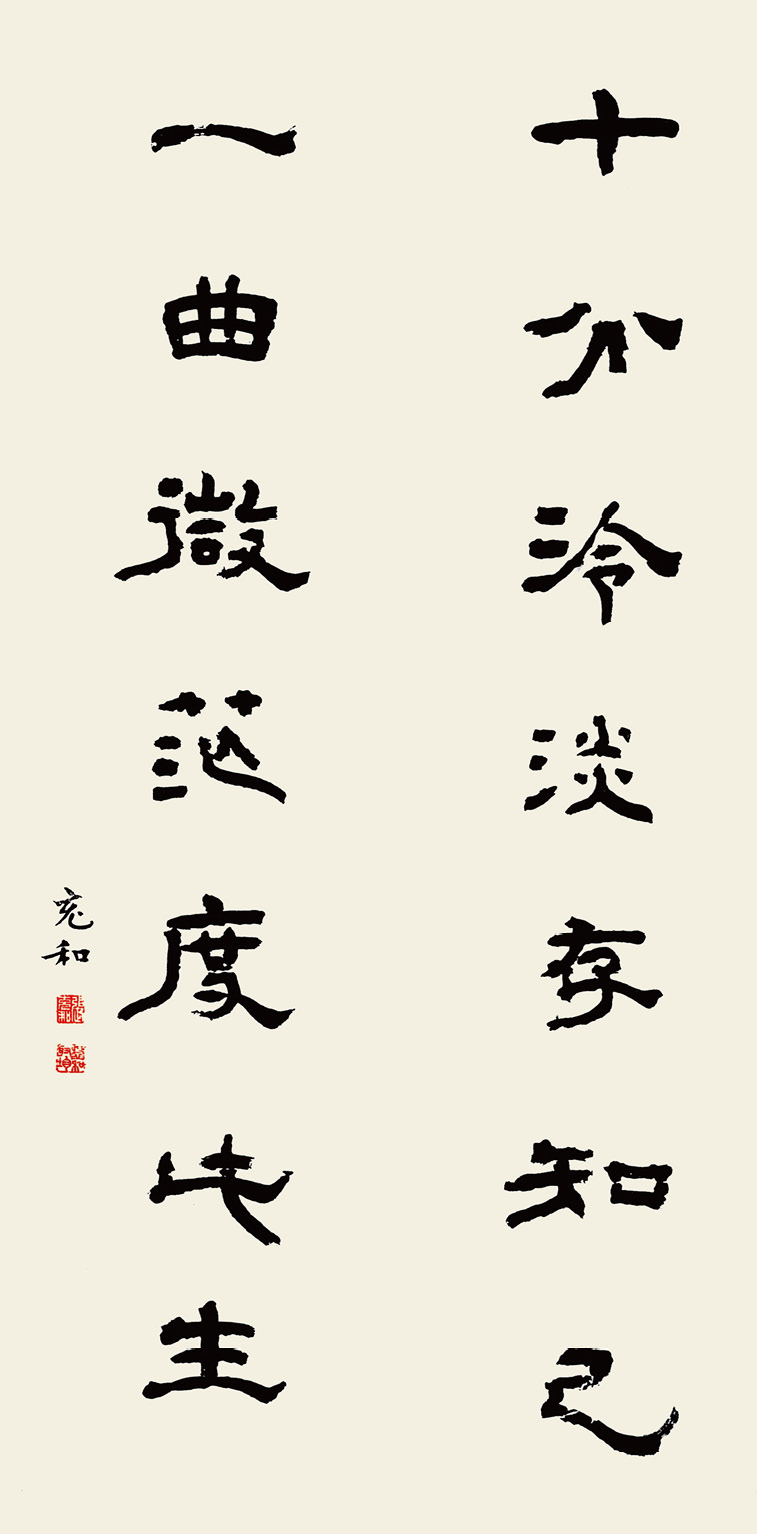 十分泠淡存知己
一曲微茫度此生
充和